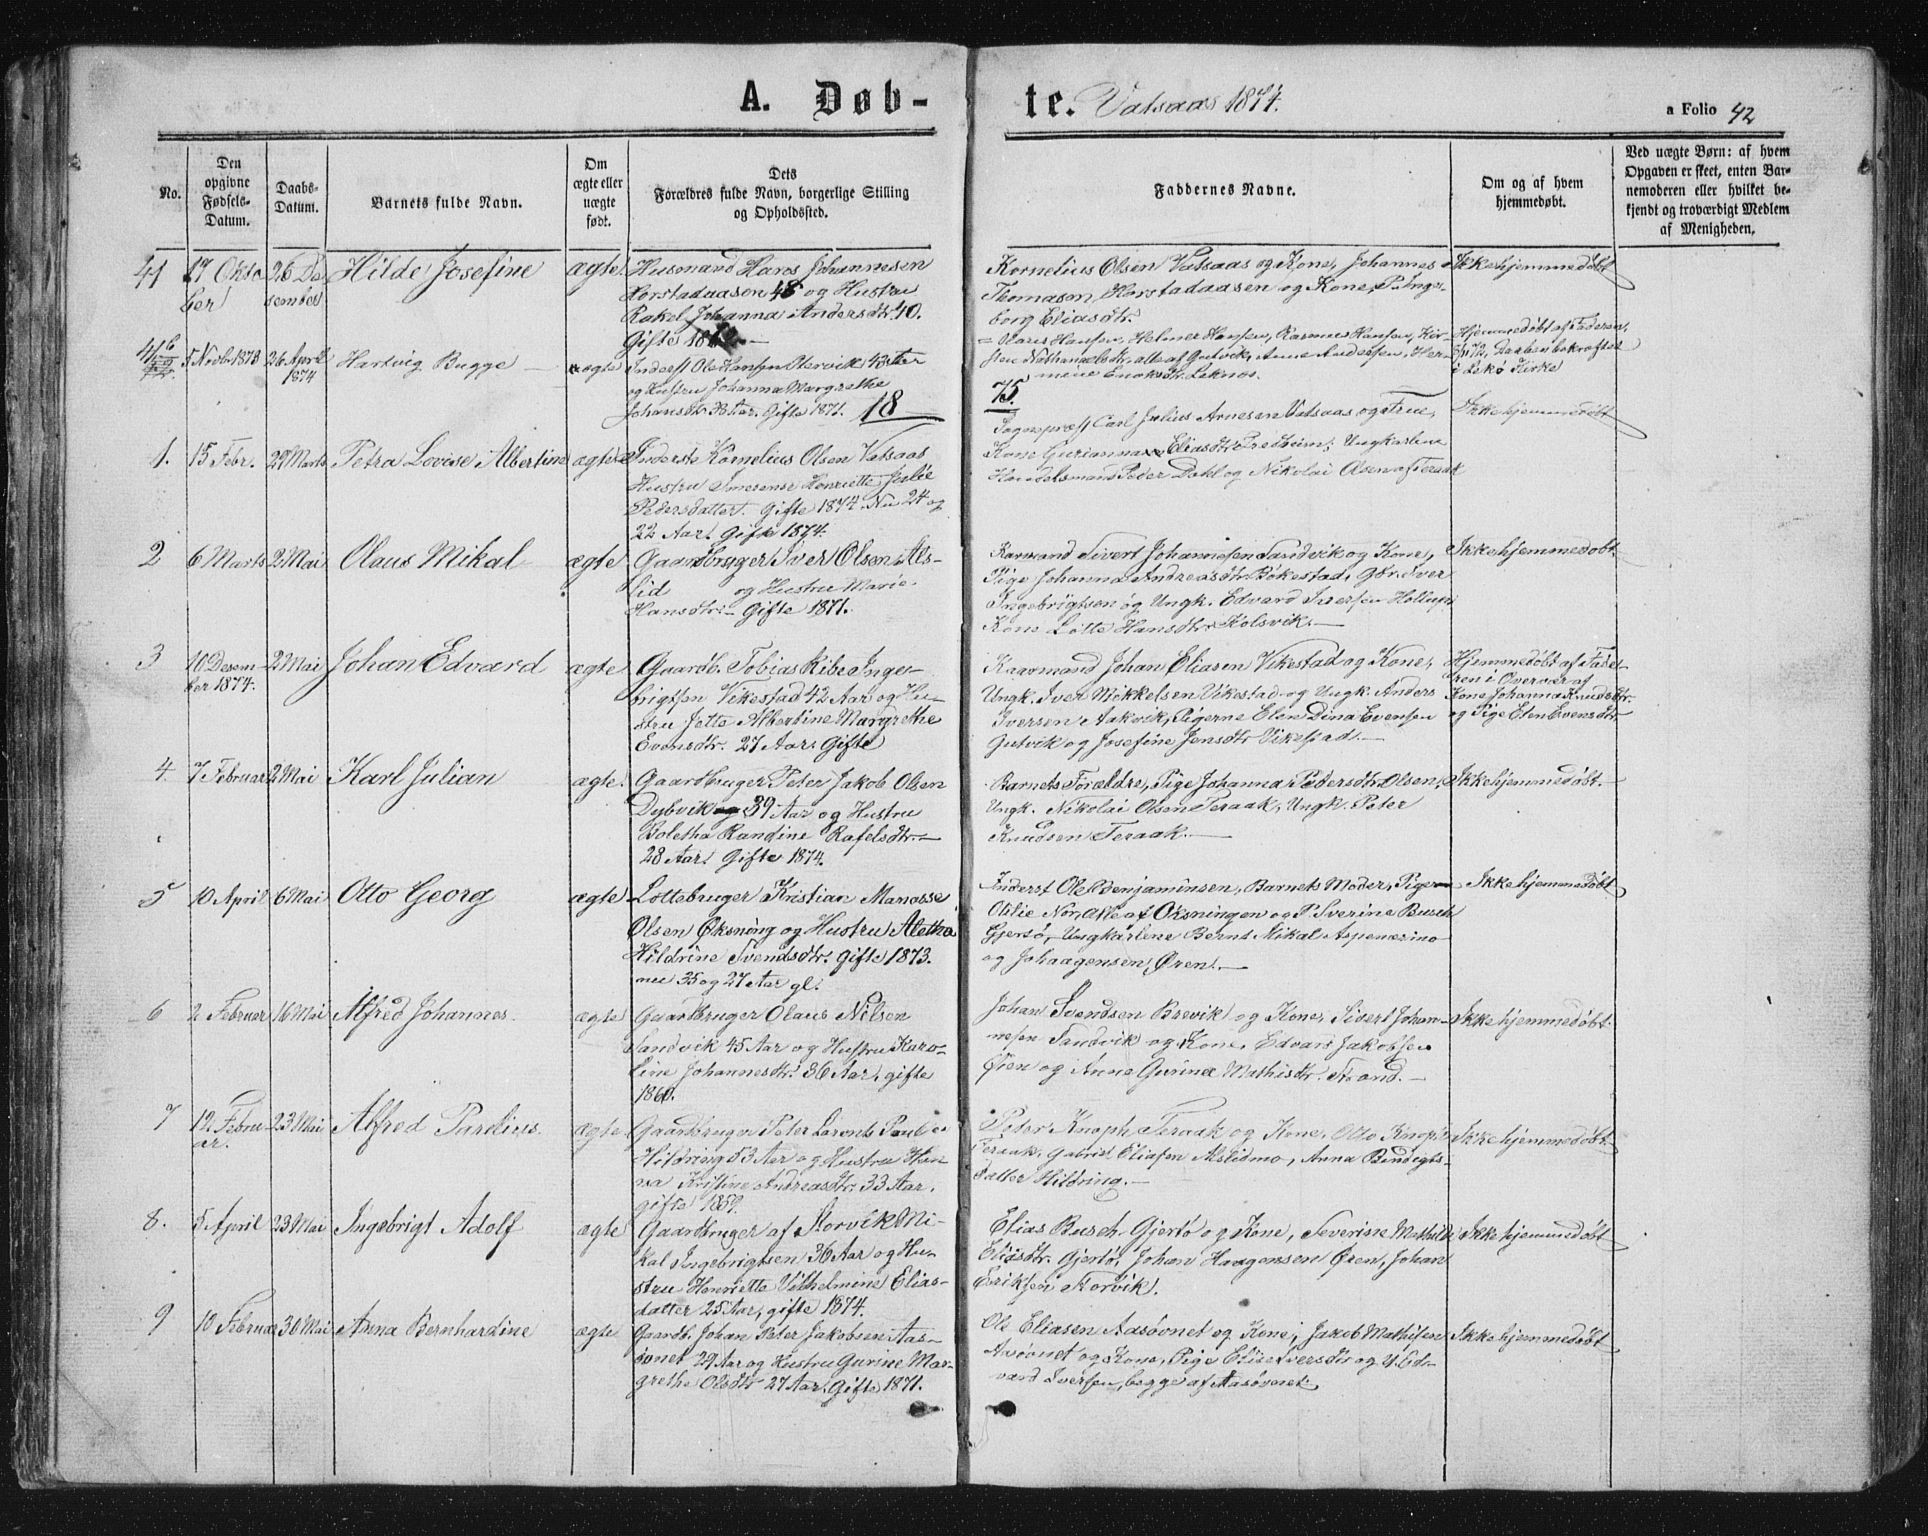 A. Døb-
te. Vatsaas 1874.
a Folio 42
No.
Den opgivne Fødsels-Datum.
Daabs-Datum.
Barnets fulde Navn.
Om ægte eller uægte født.
Dets Forældres fulde Navn, borgerlige Stilling og Opholdssted.
Faddernes Navne.
Om og af hvem hjemmedøbt.
Ved uægte Børn: af hvem Opgaven er skeet, enten Bar-nemoderen eller hvilket be-kjendt og troværdigt Medlem af Menigheden.
41 17 Okto- 26 De- Hilde Josefine ægte Husmand Hans Johannesen
ber sember Horstadaasen 48 og Hustru
Rakel Johanna Andersdtr. 40.
Gifte
Kornelius Olsen Vatsaas og Kone, Johannes
Thomasen Horstadaasen og Kone, P. Inge-
borg Eliasdtr.
Ikke hjemmedøbt
41b 5 Novbr 1873 26 April 1874 Hartvig Bugge ægte Inderst Ole Hansen
og Hustru Johanna Margrethe
Johansdtr. 38 Aar. Gifte 1871. 18
Olaus Hansen, Helmer Hansen, Rasmus Hansen, Kir-
alle af Gutvik, Anne Andersen, Her-
mine Enoksdtr. Leknes.
Hjemmedøbt af Faderen,
Daaben bekræftet
i Lekø Kirke
75.
1. 15 Febr. 29 Marts Petra Lovise Albertine ægte Inderste Kornelius Olsen Vatsaas
Hustru Henriette
Pedersdatter. Gifte 1874. Nu 24 og
22 Aar. Gifte 1874.
Sognepræst Carl Julius Arnesen Vatsaas og Frue,
Kone Gurianna Eliasdtr. Ungkarlene
Handelsmand Peder Dahl og Nikolai Olsen af Teraak
Ikke hjemmedøbt
2 6 Marts 2 Mai Olaus Mikal ægte Gaardbruger Iver Olsen Als-
lid og Hustru Marie
Hansdtr. Gifte 1871.
Kaarmand Sivert Johannesen Sandvik og Kone,
Pige Johanna Andreasdtr. Bøkestad, Gbr. Iver
Ingebrigtsen og Ungk. Edvard Iversen
Kone Lotte Hansdtr. Kolsvik.
Ikke hjemmedøbt.
3 10 Desem- 2 Mai Johan Edvard ægte Gaardb. Tobias Ribe Inge-
ber 1874. brigtsen Vikestad 42 Aar og Hu-
stru Jotta Albertine Margrethe
Evensdtr. 27 Aar. Gifte
Kaarmand Johan Eliasen Vikestad og Kone,
Ungk. Iver Mikkelsen Vikestad og Ungk. Anders
Iversen Aakvik, Pigerne Elen Dina Evensen
Gutvik og Josefine Jensdtr Vikestad.
Hjemmedøbt af Fade-
ren i Overvær af
Kone Johanna Knudsdtr.
og Pige Elen Evensdtr.
4. 7 Februar 2 Mai Karl Julian ægte. Gaardbruger Peter Jakob Olsen
Dybvik 39 Aar og Hustru
Boletha Randine Rafelsdtr.
28 Aar. Gifte 1874.
Barnets Forældre, Pige Johanna Pedersdtr. Olsen,
Ungk. Nikolai Olsen Teraak, Ungk. Peter
Knudsen Teraak.
Ikke hjemmedøbt.
5 10 April 6 Mai Otto Georg ægte Lottebruger Kristian Manasse
Olsen Øksning og Hustru Aletha
Hildrine Svendsdtr. Gifte 1873.
nu 35 og 27 Aar gl.
Inderst Ole Benjaminsen, Barnets Moder,
Otilie Nor, Alle af Øksningen og P. Sverine Busch
Gjersø, Ungkarlene Bernt Mikal
og Joh. Øren.
Ikke hjemmedøbt
6 2 Februar 16 Mai Alfred Johannes. ægte Gaardbruger Olaus Nilsen
Sandvik 45 Aar og Hustru Karo-
line Johannesdtr. 36 Aar, gifte
1860.
Johan Svendsen Brevik og Kone, Sivert Johan-
nesen Sandvik og Kone, Edvard Jakobsen
Øren og Anne Gurina Mathisdtr. Strand.
Ikke hjemmedøbt.
7 12 Febru- 23 Mai Alfred Parelius. ægte Gaardbruger Peter Lorents
ar. Hildring 53 Aar og Hustru Han-
na Kristine Andreasdtr. 33 Aar,
gifte 1859.
Peter Knoph Teraak og Kone, Otto Knoph
Teraak, Gabriel Eliasen Alslidmo, Anna Bendigts-
datter Hildring.
Ikke hjemmedøbt
8. 5 April 23 Mai Ingebrigt Adolf ægte Gaardbruger af Storvik Mi-
kal Ingebrigtsen 36 Aar og Hu-
stru Henriette Vilhelmine Elias-
datter 25 Aar, gifte 1874.
Elias Busch Gjersø og Kone, Severine Mathilde
Eliasdtr. Gjersø, Johan Haagensen Øren, Johan
Eriksen Storvik.
Ikke hjemmedøbt
9 10 Februar 30 Mai Anna Bernhardine ægte Gaardb. Johan Peter Jakobsen Aas-
øvnet 29 Aar og Hustru Gurine Mar-
grethe Olsdtr 27 Aar. Gifte 1871.
Ole Eliasen Aasøvnet og Kone, Jakob Mathisen
Aasøvnet og Kone, Pige Elise Iversdtr og U. Ed-
vard Iversen, begge af Aasøvnet.
Ikke hjemmedøbt